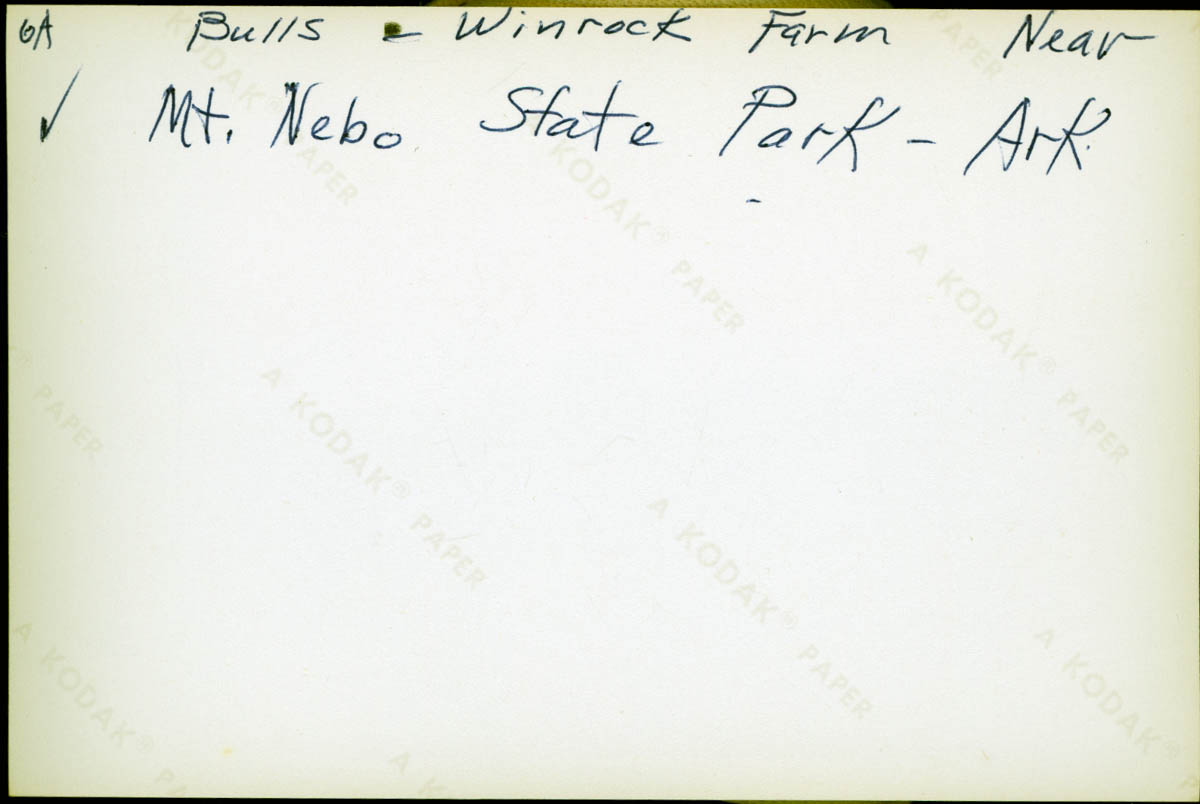 6A Bulls - Winrock Farm Near
✓ Mt. Nebo State Park - Ark.
KODAK® PAPER
PAPER
A KODAK® PAPER
A KODAK® PAPER
PAPER
A KODAK® PAPER
A KODAK® PAPER
A KODAK® PA
A KODAK
A K